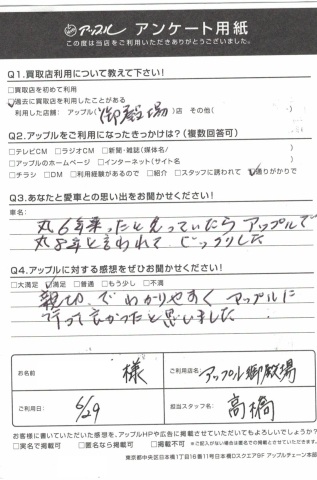 アップル アンケート用紙
この度は当店をご利用いただきありがとうございました。
Q1.買取店利用について教えて下さい!
□買取店を初めて利用
☑過去に買取店を利用したことがある
利用した店舗: アップル(御殿場)店 その他( )
Q2.アップルをご利用になったきっかけは?(複数回答可)
□テレビCM □ラジオCM □新聞・雑誌(媒体名/ )
□アップルのホームページ □インターネット(サイト名 )
□チラシ □DM □利用経験があるので □紹介 □スタッフに誘われて ☑通りがかりで
Q3.あなたと愛車との思い出をお聞かせください!
車名:
丸6年乗ったと思っていたらアップルで
丸8年と言われて、びっくりした
Q4.アップルに対する感想をぜひお聞かせください!
□大満足 ☑満足 □普通 □もう少し □不満
親切、でわかりやすく アップルに
行って良かったと思いました。
お名前 様
ご利用店名 アップル御殿場
ご利用日: 6/29
担当スタッフ名: 高橋
お客様に書いていただいた感想を、アップルHPや広告に掲載させていただいてもよろしいでしょうか?
□実名で掲載可 □匿名なら掲載可 □掲載不可 ※ご記入がない場合は匿名での掲載とさせていただきます。
東京都中央区日本橋1丁目16番11号日本橋Dスクエア8F アップルチェーン本部